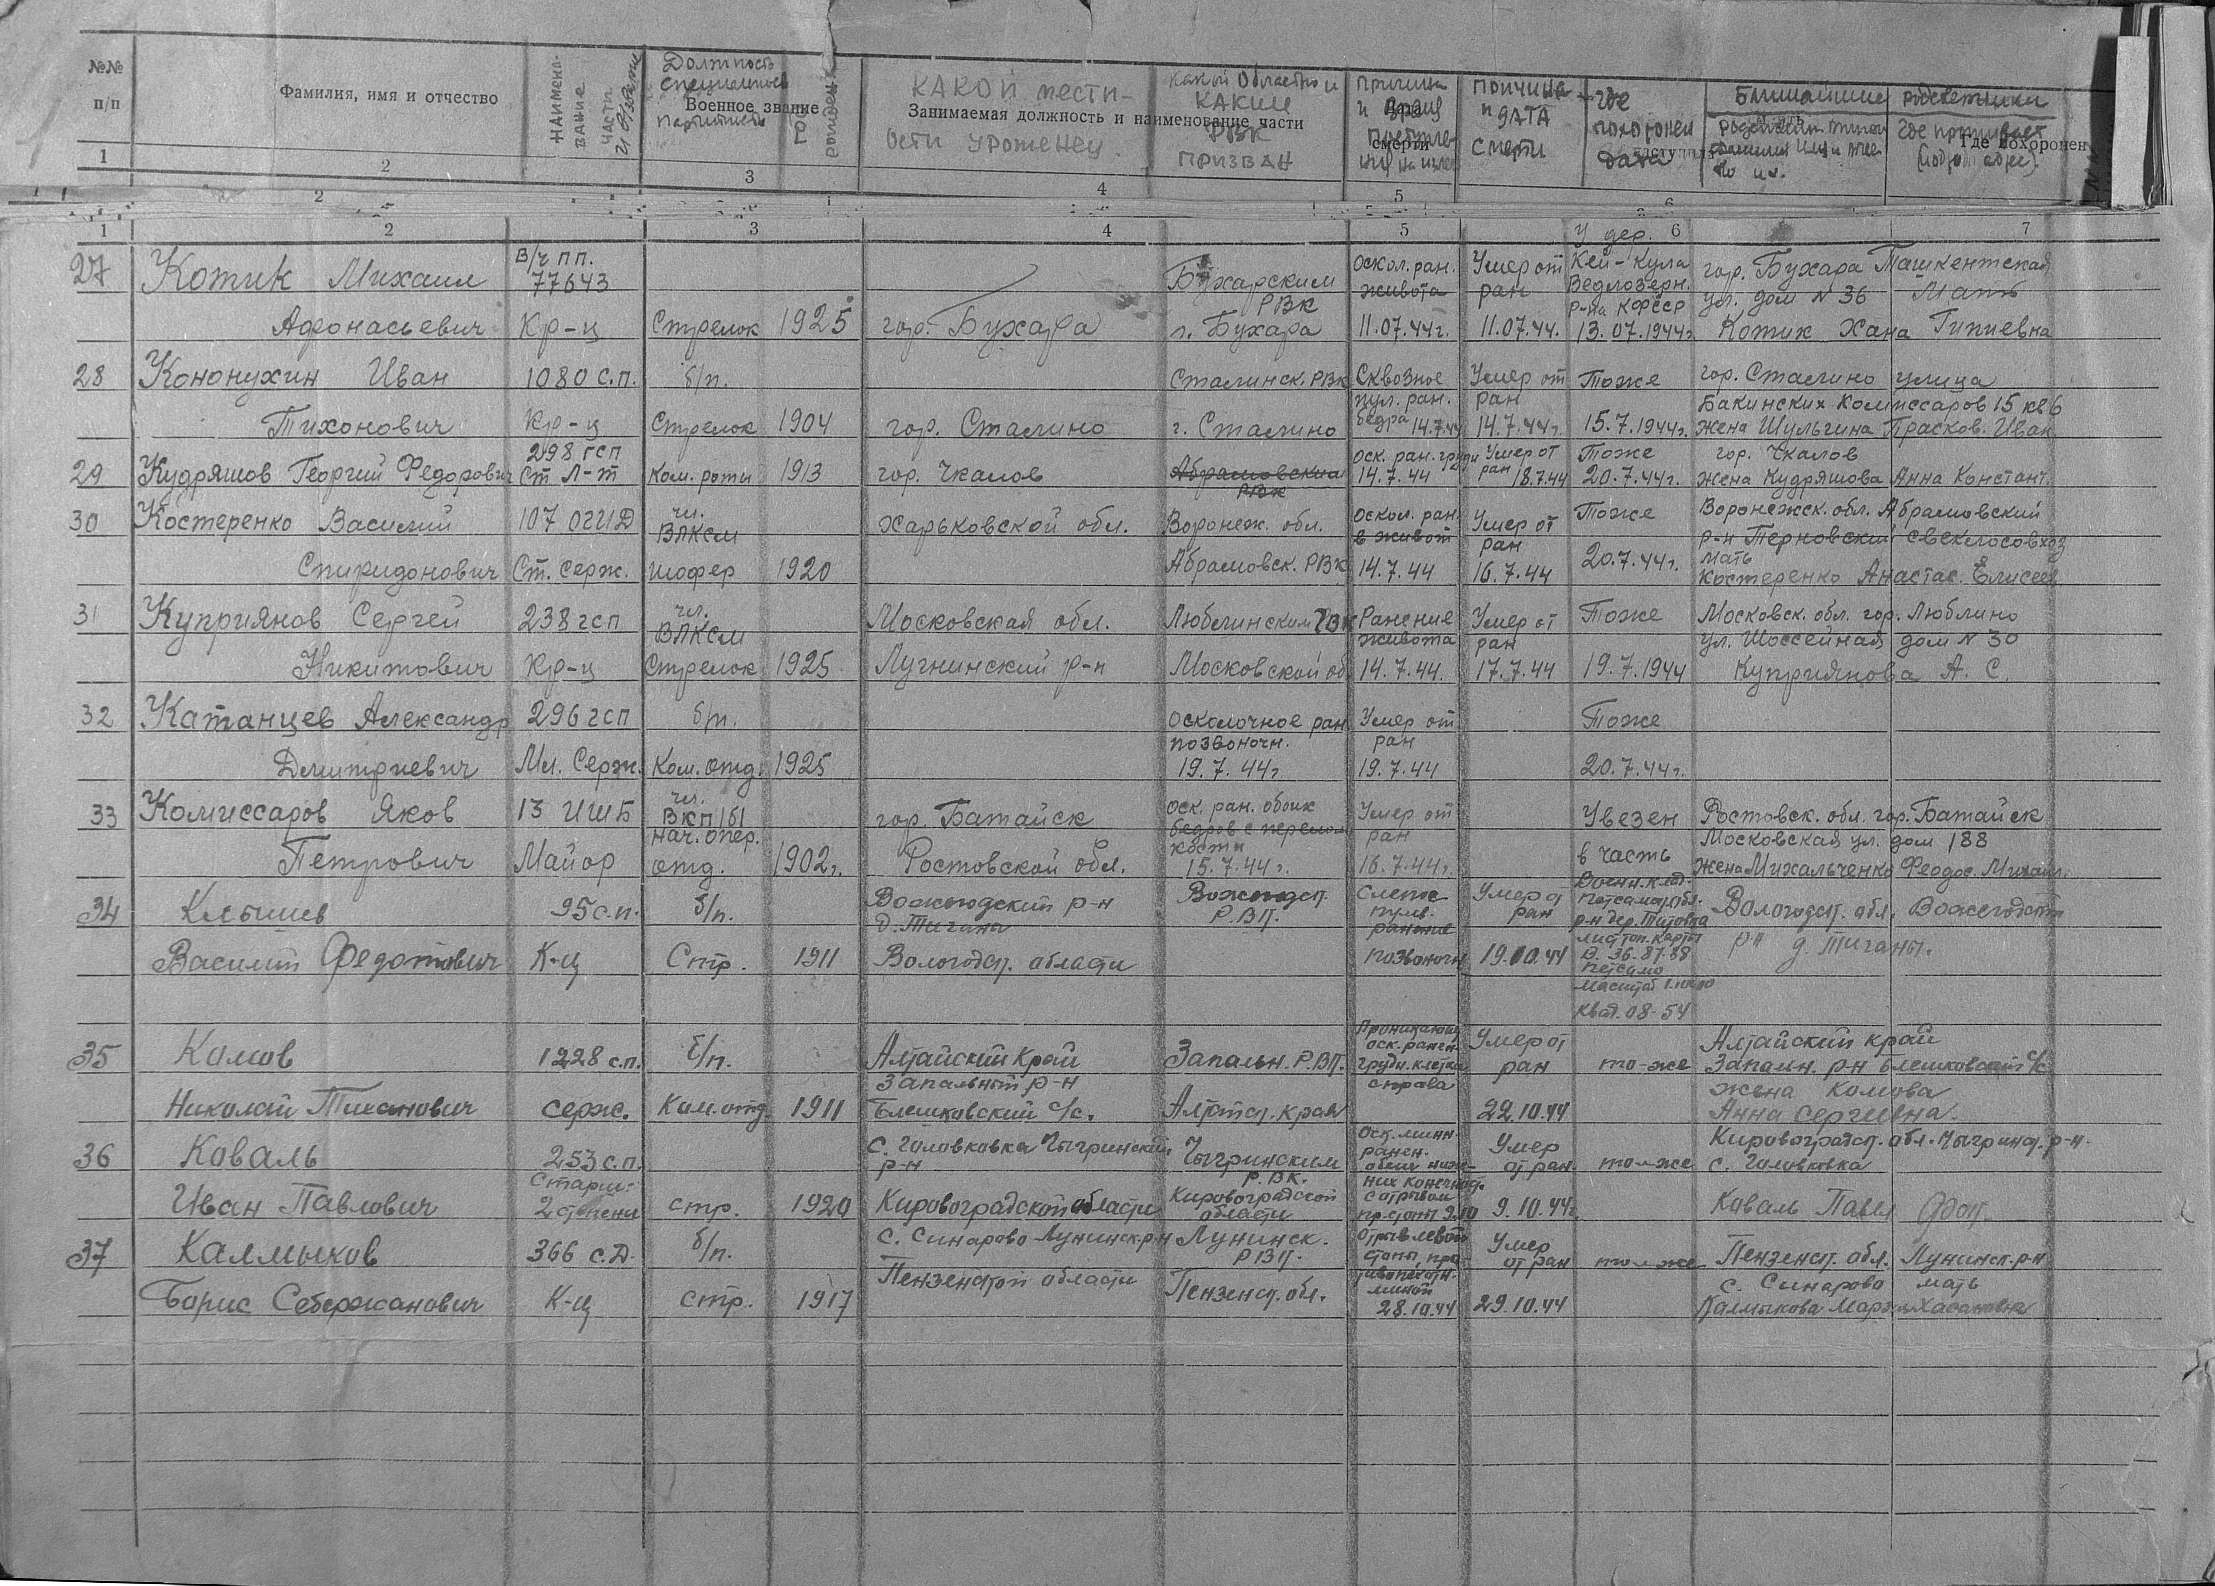 №№ п/п
Фамилия, имя и отчество
Наимено-
вание
части
и звание
Должность
специальность
Военное звание
партийность
Год
рожден.
Какой мести-
Занимаемая должность и наименование части
ости уроженец
Какой областью и
каким
РВК
призван
Причина
и
смерти
Причина
и дата
смерти
Где
похоронен
дата
Ближайшие родственники
Где проживает
Где похоронен
1 2 3 4 5 6
1 2 3 4 5 6 7
27 Котик Михаил
Афонасьевич
В/ч пп.
77643
Кр-ц
Стрелок
1925
гор. Бухара
Бухарским
РВК
г. Бухара
Оскол. ран.
живота
11.07.44г.
Умер от
ран
11.07.44.
У дер.
Кей-Кула
Ведлозерн.
р-на КФССР
13.07.1944г.
гор. Бухара Ташкентская
ул. дом N 36 Мать
Котик Хана
28 Кононухин Иван
Тихонович
1080 с.п.
Кр-ц
б/п.
Стрелок
1904
гор. Сталино
Сталинск. РВК
г. Сталино
Сквозное
пул. ран.
бедра 14.7.44
Умер от
ран
14.7.44г.
Тоже
15.7.1944г.
гор. Сталино улица
Бакинских Комиссаров 15 кв 6
жена Шульгина Прасков. Иван
29 Кудряшов Георгий Федорович
298 гсп
Ст Л-т
Ком. роты
1913
гор. Чкалов
Абрамовский
РВК
Оск. ран. груди
14.7.44
Умер от
ран 18.7.44
Тоже
20.7.44г.
гор. Чкалов
жена Кудряшова Анна Констант.
30 Костеренко Василий
Спиридонович
107 ОГИД
Ст. Серж.
чл.
ВЛКСМ
шофер
1920
Харьковской обл.
Воронеж. обл.
Абрамовск. РВК
Оскол. ран.
в живот
14.7.44
Умер от
ран
16.7.44
Тоже
20.7.44г.
Воронежск. обл. Абрамовский
р-н Терновский свеклосовхоз
мать
Костеренко Анастас. Елисеев
31 Куприянов Сергей
Никитович
238 гсп
Кр-ц
чл.
ВЛКСМ
Стрелок
1925
Московская обл.
Лугнинский р-н
Люблинским РВК
Московской об
Ранение
живота
14.7.44.
Умер от
ран
17.7.44
Тоже
19.7.1944
Московск. обл. гор. Люблино
ул. Шоссейная дом N 30
Куприянова А. С.
32 Катанцев Александр
Дмитриевич
296 гсп
Мл. Серж.
б/п.
Ком. отд.
1925
Осколочное ран
позвоночн.
19.7.44г
Умер от
ран
19.7.44
Тоже
20.7.44г.
33 Комиссаров Яков
Петрович
13 ИШБ
Майор
чл.
ВКП/б/
Нач. опер.
отд.
1902г.
гор. Батайск
Ростовской обл.
Оск. ран. обоих
бедров с перелом
кости
15.7.44г.
Умер от
ран
16.7.44г.
Увезен
в часть
Ростовск. обл. гор. Батайск
Московская ул. дом 188
жена Михальченко Феодос. Михайл.
34 Клышев
Василий Федотович
95 с.п.
К-ц
б/п.
Стр.
1911
Вожегодский р-н
д. Тигина
Вологодск. области
Вожегодск.
Р.В.К.
Слепое
пулев.
ранение
позвоночн
Умер от
ран
19.10.44
Военн. клад.
Петсам. обл.
р-н дер. Титовка
лист топ. карты
R. 36-87-88
Петсамо
Масштаб
Квад. 08-54
Вологодск. обл. Вожегодский
рн д. Тигана.
35 Комов
Николай Тиханович
1228 с.п.
серж.
б/п.
Ком. отд.
1911
Алтайский край
Запальный р-н
Блешковский с/с.
Запальн. Р.В.К.
Алтайск. края
Проникающ.
оск. ранен.
грудн. клетки
справа
Умер от
ран
22.10.44
то-же
Алтайский край
Запальн. р-н Блешковский с/с
жена Комова
Анна Сергеевна.
36 Коваль
Иван Павлович
253 с.п.
Старш.
2 степени
стр.
1920
с. Головковка Чыгринский
р-н
Кировоградской области
Чыгринским
Р.В.К.
Кировоградской
области
Оск. минн.
ранен.
обеих ниж-
них конечност.
с отрывом
пр. стопы 9.10
Умер
от ран
9.10.44г.
то-же
Кировоградск. обл. Чыгринск. р-н.
с. Головковка
Коваль Павел Фот.
37 Калмыков
Борис Себержанович
366 с.д.
К-ц
б/п.
стр.
1917
с. Синарово Лунинск. р-н
Пензенской области
Лунинск.
РВК.
Пензенск. обл.
Отрыв левой
стопы, про-
тивопехотн.
миной
28.10.44
Умер
от ран
29.10.44
то-же
Пензенск. обл. Лунинск. р-н
с. Синарово мать
Калмыкова Марья Хасановна